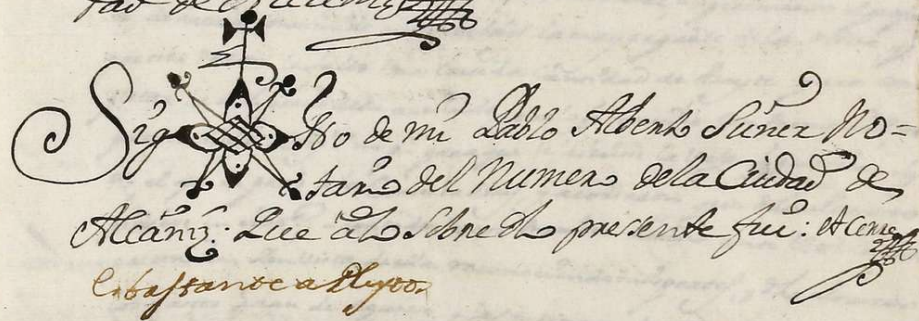 Sig No de mi Pablo Alberto Suñer No=
tario del Numero de la Ciudad de
Alcañiz. Que a lo Sobre dho presente fui: et Cerre
Es bastante a Pleytos